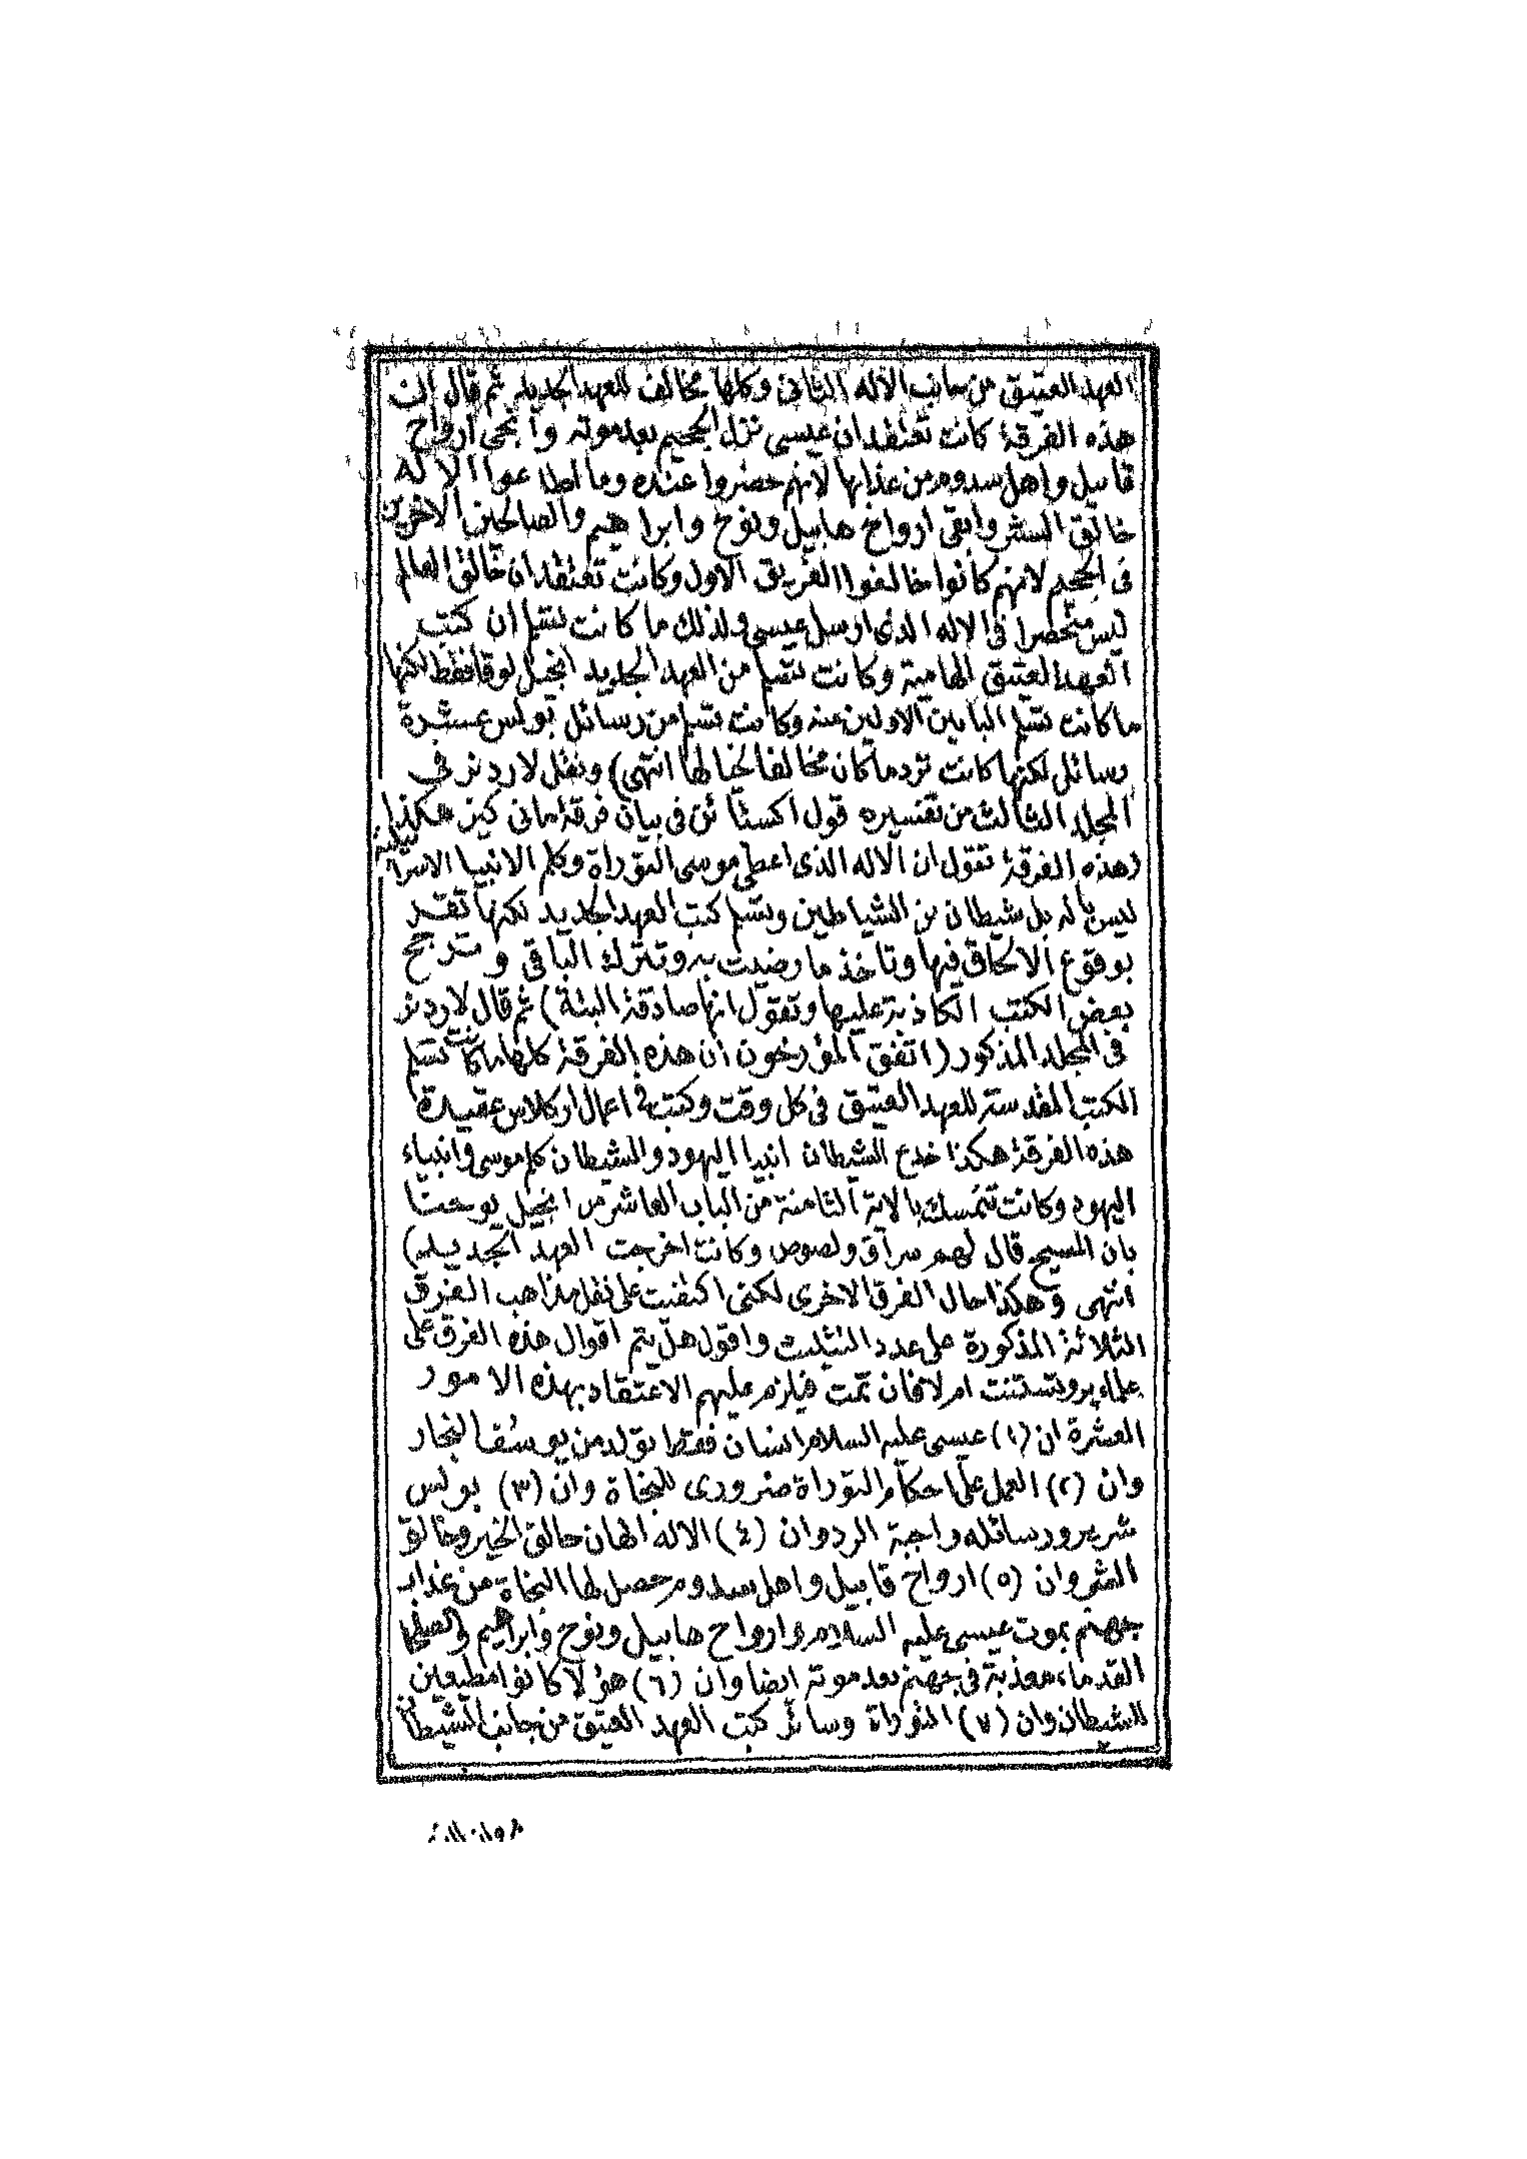 العهد العتيق من جانب الاله الثانى وكلها مخالف للعهد الجديد ثم قال ان
هذه الفرقة كانت تعتقد ان عيسى نزل الجحيم بعد موته وانجى ارواح
قابيل واهل سدوم من عذابها لانهم حضروا عنده وما اطاعوا الاله
خالق الشر وابقى ارواح هابيل ونوح وابراهيم والصالحين الاخرين
فى الجحيم لانهم كانوا خالفوا الفريق الاول وكانت تعتقد ان خالق العالم
ليس منحصرا فى الاله الذى ارسل عيسى ولذلك ما كانت تسلم ان كتب
العهد العتيق الهامية وكانت تسلم من العهد الجديد انجيل لوقا فقط لكنها
ما كانت تسلم البابين الاولين منه وكانت تسلم من رسائل بولس عشرة
رسائل لكنها كانت ترد ما كان مخالفا لخيالها انتهى) ونقل لاردنر فى
المجلد الثالث من تفسيره قول اكستائن فى بيان فرقة مانى كيز هكذا
(هذه الفرقة تقول ان الاله الذى اعطى موسى التوراة وكلم الانبيا الاسرائيلية
ليس باله بل شيطان من الشياطين وتسلم كتب العهد الجديد لكنها تقر
بوقوع الالحاق فيها وتاخذ ما رضيت به وتترك الباقى وترجح
بعض الكتب الكاذبة عليها وتقول انها صادقة البتة) ثم قال لاردنر
فى المجلد المذكور (اتفق المؤرخون ان هذه الفرقة كلها ما كانت تسلم
الكتب المقدسة للعهد العتيق فى كل وقت وكتب فى اعمال اركلاس عقيدة
هذه الفرقة هكذا خدع الشيطان انبيا اليهود والشيطان كلم موسى وانبياء
اليهود وكانت تتمسك بالاية الثامنة من الباب العاشر من انجيل يوحنا
بان المسيح قال لهم سراق ولصوص وكانت اخرجت العهد الجديد)
انتهى وهكذا حال الفرق الاخرى لكنى اكتفيت على نقل مذاهب الفرق
الثلاثة المذكورة على عدد التثليث واقول هل يتم اقوال هذه الفرق على
علماء بروتستنت ام لا فان تمت فيلزم عليهم الاعتقاد بهذه الامور
العشرة ان (١) عيسى عليه السلام انسان فقط تولد من يوسف النجار
وان (٢) العمل على احكام التوراة ضرورى للنجاة وان (٣) بولس
شرير ورسائله واجبة الرد وان (٤) الاله الهان خالق الخير وخالق
الشر وان (٥) ارواح قابيل واهل سدوم حصل لها النجاة من عذاب
جهنم بموت عيسى عليه السلام وارواح هابيل ونوح وابراهيم والصلحا
القدماء معذبة فى جهنم بعد موته ايضا وان (٦) هؤلا كانوا مطيعين
للشيطان وان (٧) التوراة وسائر كتب العهد العتيق من جانب الشيطان